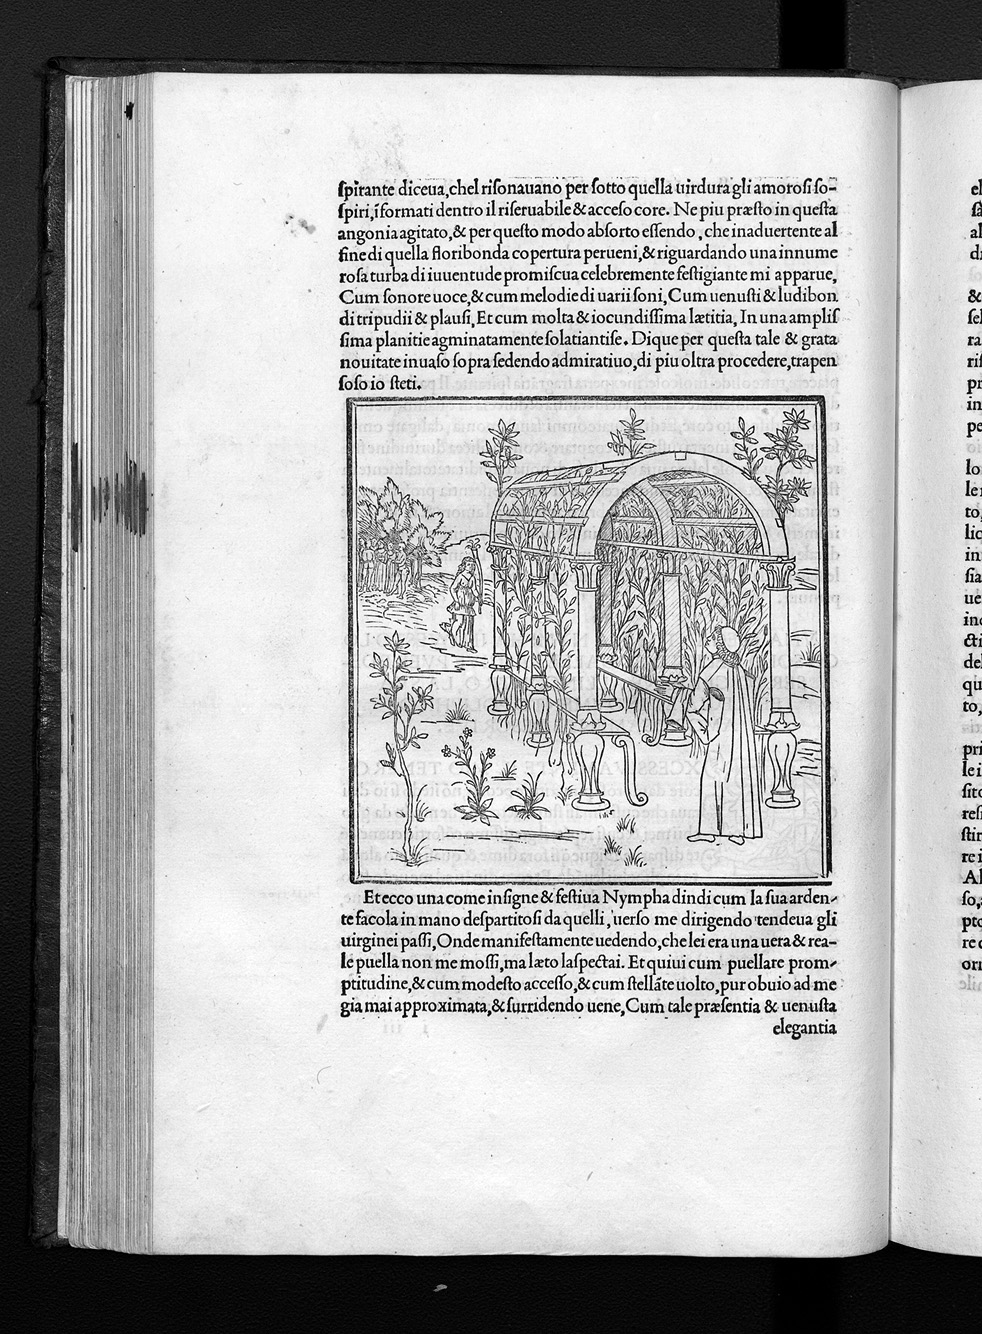 ſpirante diceua,chel riſonauano per ſotto quella uirdura gli amoroſi ſo-
ſpiri,īformati dentro il riſeruabile & acceſo core. Ne piu præſto in queſta
angonia agitato,& per queſto modo abſorto eſſendo, che inaduertente al
fine di quella floribonda copertura perueni,& riguardando una innume
roſa turba di iuuentude promiſcua celebremente feſtigiante mi apparue,
Cum ſonore uoce,& cum melodie di uarii ſoni, Cum uenuſti & ludibon
di tripudii & plauſi, Et cum molta & iocundiſſima lætitia, In una ampliſ
ſima planitie agminatamente ſolatiantiſe. Dique per queſta tale & grata
nouitate inuaſo ſopra ſedendo admiratiuo,di piu oltra procedere,trapen
ſoſo io ſteti.
Et ecco una come inſigne & feſtiua Nympha dindi cum la ſua arden-
te facola in mano deſpartitoſi da quelli, uerſo me dirigendo tendeua gli
uirginei paſſi, Onde manifeſtamente uedendo,che lei era una uera & rea-
le puella non me moſſi,ma læto laſpectai. Et quiui cum puellare prom-
ptitudine,& cum modeſto acceſſo,& cum ſtellāte uolto,pur obuio ad me
gia mai approximata,& ſurridendo uene, Cum tale præſentia & uenuſta
elegantia